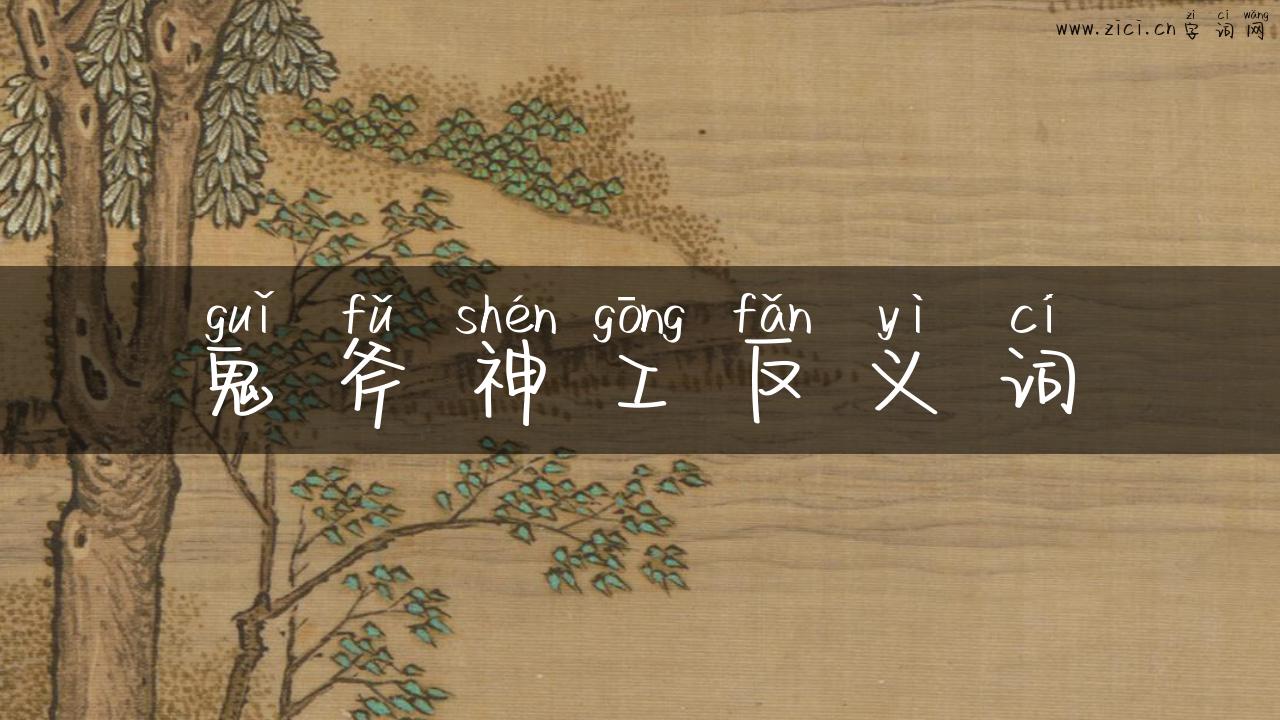 zì cí wǎng
www.zici.cn 字词网
guǐ fǔ shén gōng fǎn yì cí
鬼斧神工反义词